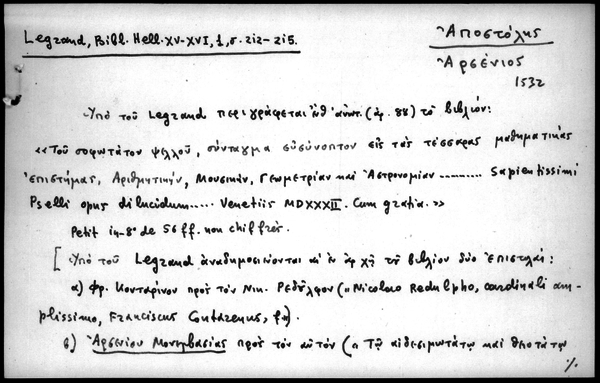 Legrand, Bibl. Hell. XV-XVI, 1, σ. 212-215.
Ἀποστόλης
Ἀρσένιος
1532
Ὑπὸ τοῦ Legrand περιγράφεται ἐνθ' ἀνωτ. (ἀρ. 88) τὸ βιβλίον:
«Τοῦ σοφωτάτου Ψελλοῦ, σύνταγμα εὐσύνοπτον εἰς τὰς τέσσαρας μαθηματικὰς
ἐπιστήμας, Ἀριθμητικήν, Μουσικήν, Γεωμετρίαν καὶ Ἀστρονομίαν ......... Sapientissimi
Pselli opus dilucidum..... Venetiis MDXXXII. Cum gratia.»
Petit in-8° de 56 ff. non chiffrés.
[Ὑπὸ τοῦ Legrand ἀναδημοσιεύονται αἱ ἐν ἀρχῇ τοῦ βιβλίου δύο ἐπιστολαί:
α) Φρ. Κονταρίνου πρὸς τὸν Νικ. Ρεδύλφον («Nicolao Redulpho, cardinali am-
plissimo, Franciscus
β) Ἀρσενίου Μονεμβασίας πρὸς τὸν αὐτόν («Τῷ αἰδεσιμωτάτῳ καὶ θειοτάτῳ
./.